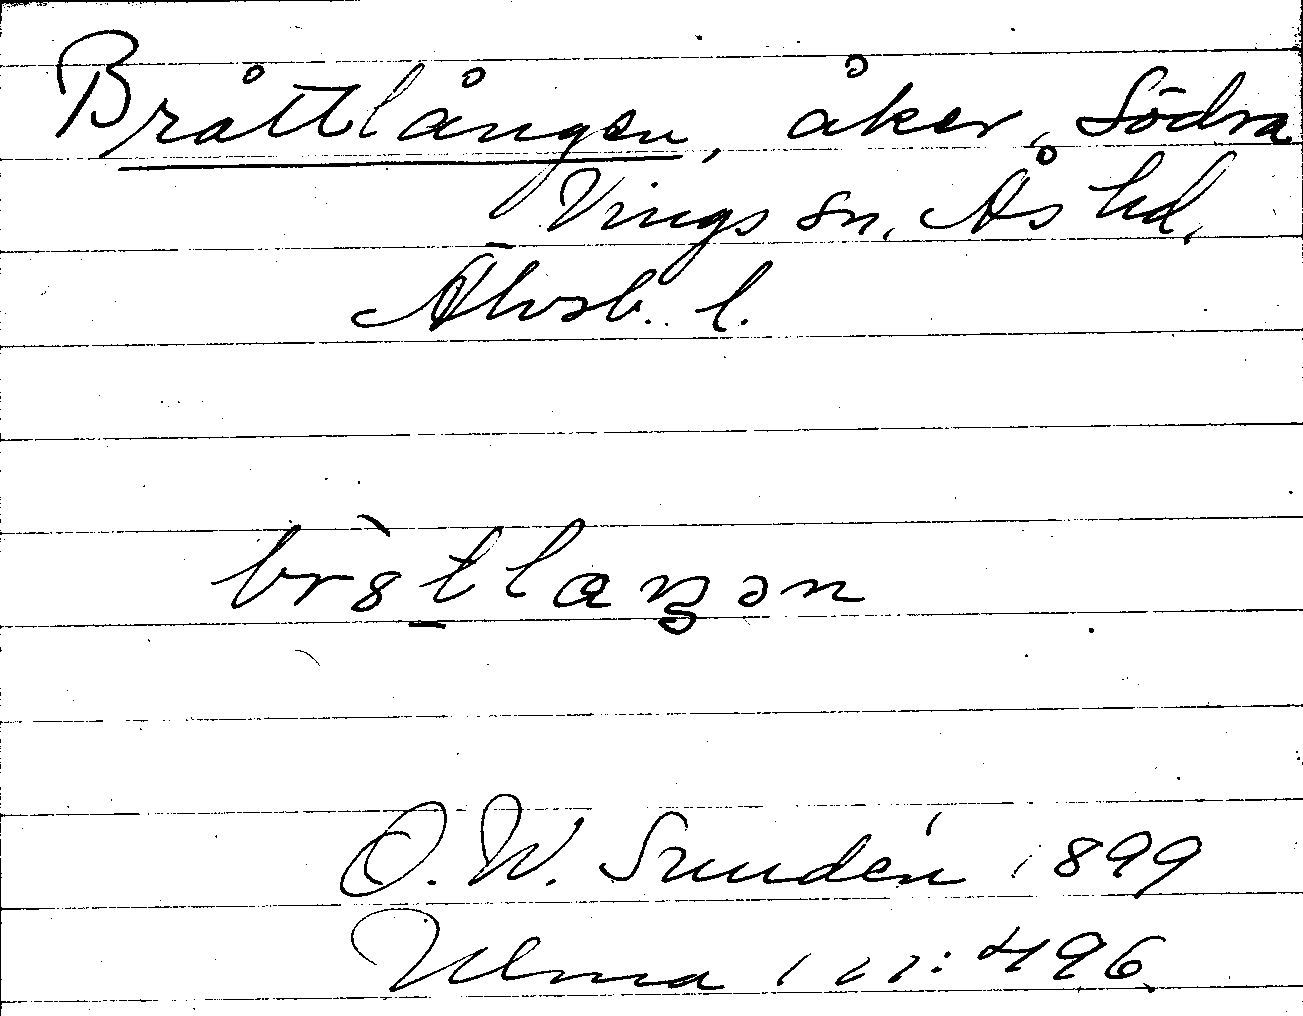 Bråttlången, åker, Södra
Vings sn, Ås hd,
Älvsb. l.
br8̀t̲laŋən
D. W. Sundén 1899
Ulma 111:496